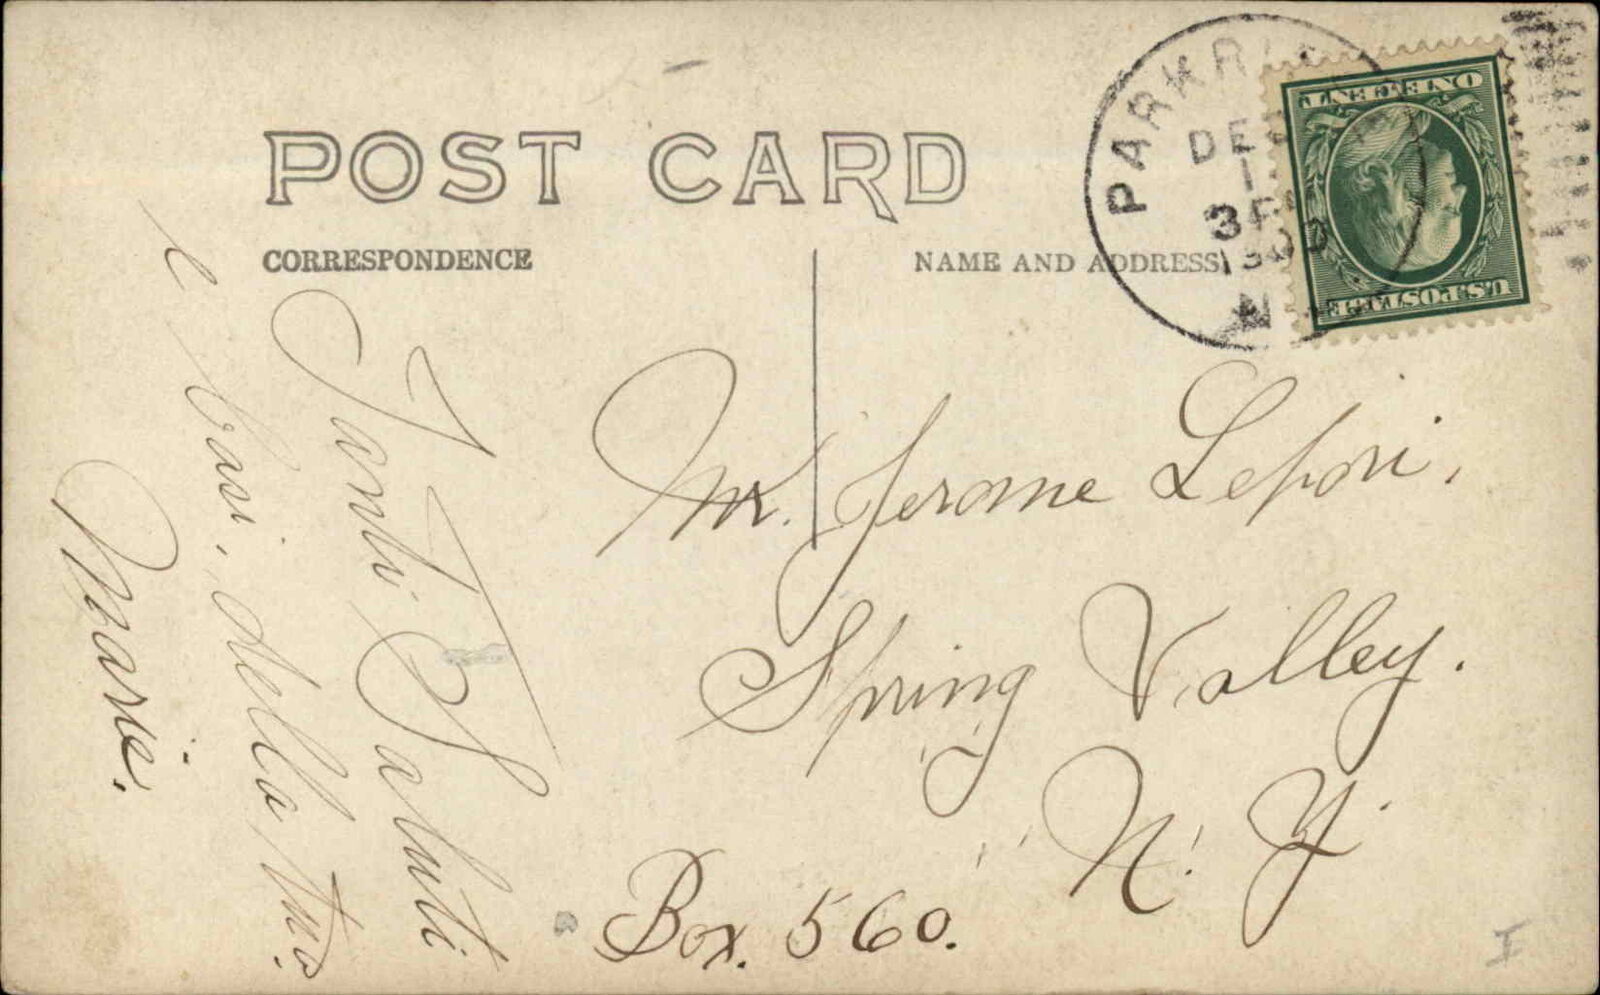 POST CARD
CORRESPONDENCE
NAME AND ADDRESS
PARK R
DE
3
N
ONE CENT
U.S. POSTAGE
Tanti Saluti
e basi, della tua
Marie.
Mr. Jerome Lepori.
Spring Valley.
N. Y.
Box. 560.
I